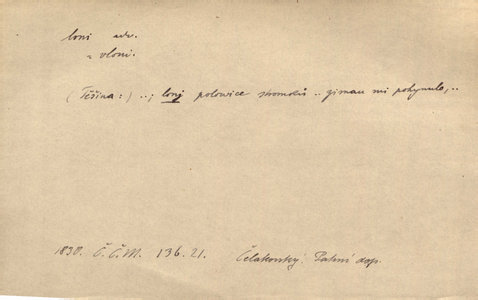 loni adv.
= vloni.
(Těšina:) ..; lonj polowice stromků .. zimau mi pohynulo, ..
1830. Č.Č.M. 136.21. Čelakovský: Patení dop.